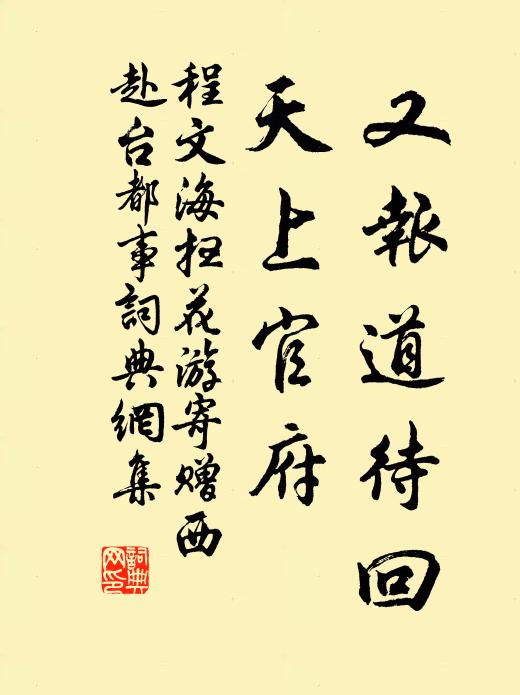 又報道待回
天上官府
程文海扫花游寄赠西
赴台都事詞典網集
詞典网印